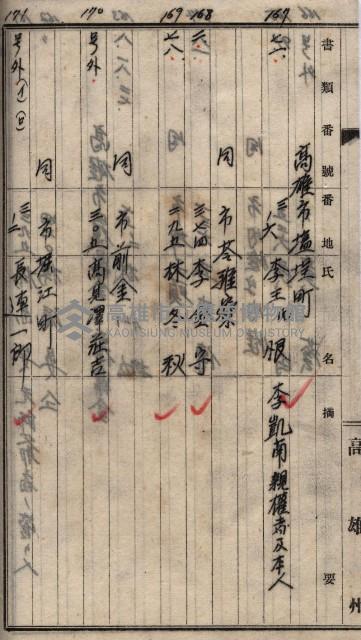 書類番號 番地 氏名 摘要
高雄州
167
七一
高雄市塩埕町
三ノ六 李王 眼
李凱南親權者及本人
168
同 市苓雅寮
三七四 李
169
七八
三九五 林冬秋
170
号外
同 市前金
三〇五 高見澤莊吉
171
号外
同 市堀江町
長連一郎
高雄市立歷史博物館
KAOHSIUNG MUSEUM OF HISTORY